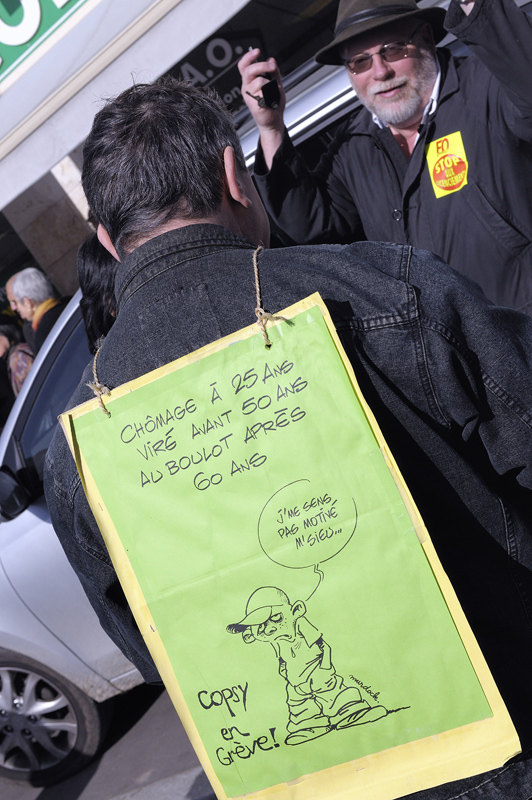 A.O..
EN
STOP
AUX
LICENCIEMENTS
CHÔMAGE À 25 ANS
VIRÉ AVANT 50 ANS
AU BOULOT APRÈS
60 ANS
J'ME SENS
PAS MOTIVÉ
M'SIEU...
murdock
Copsy
en
Grève!